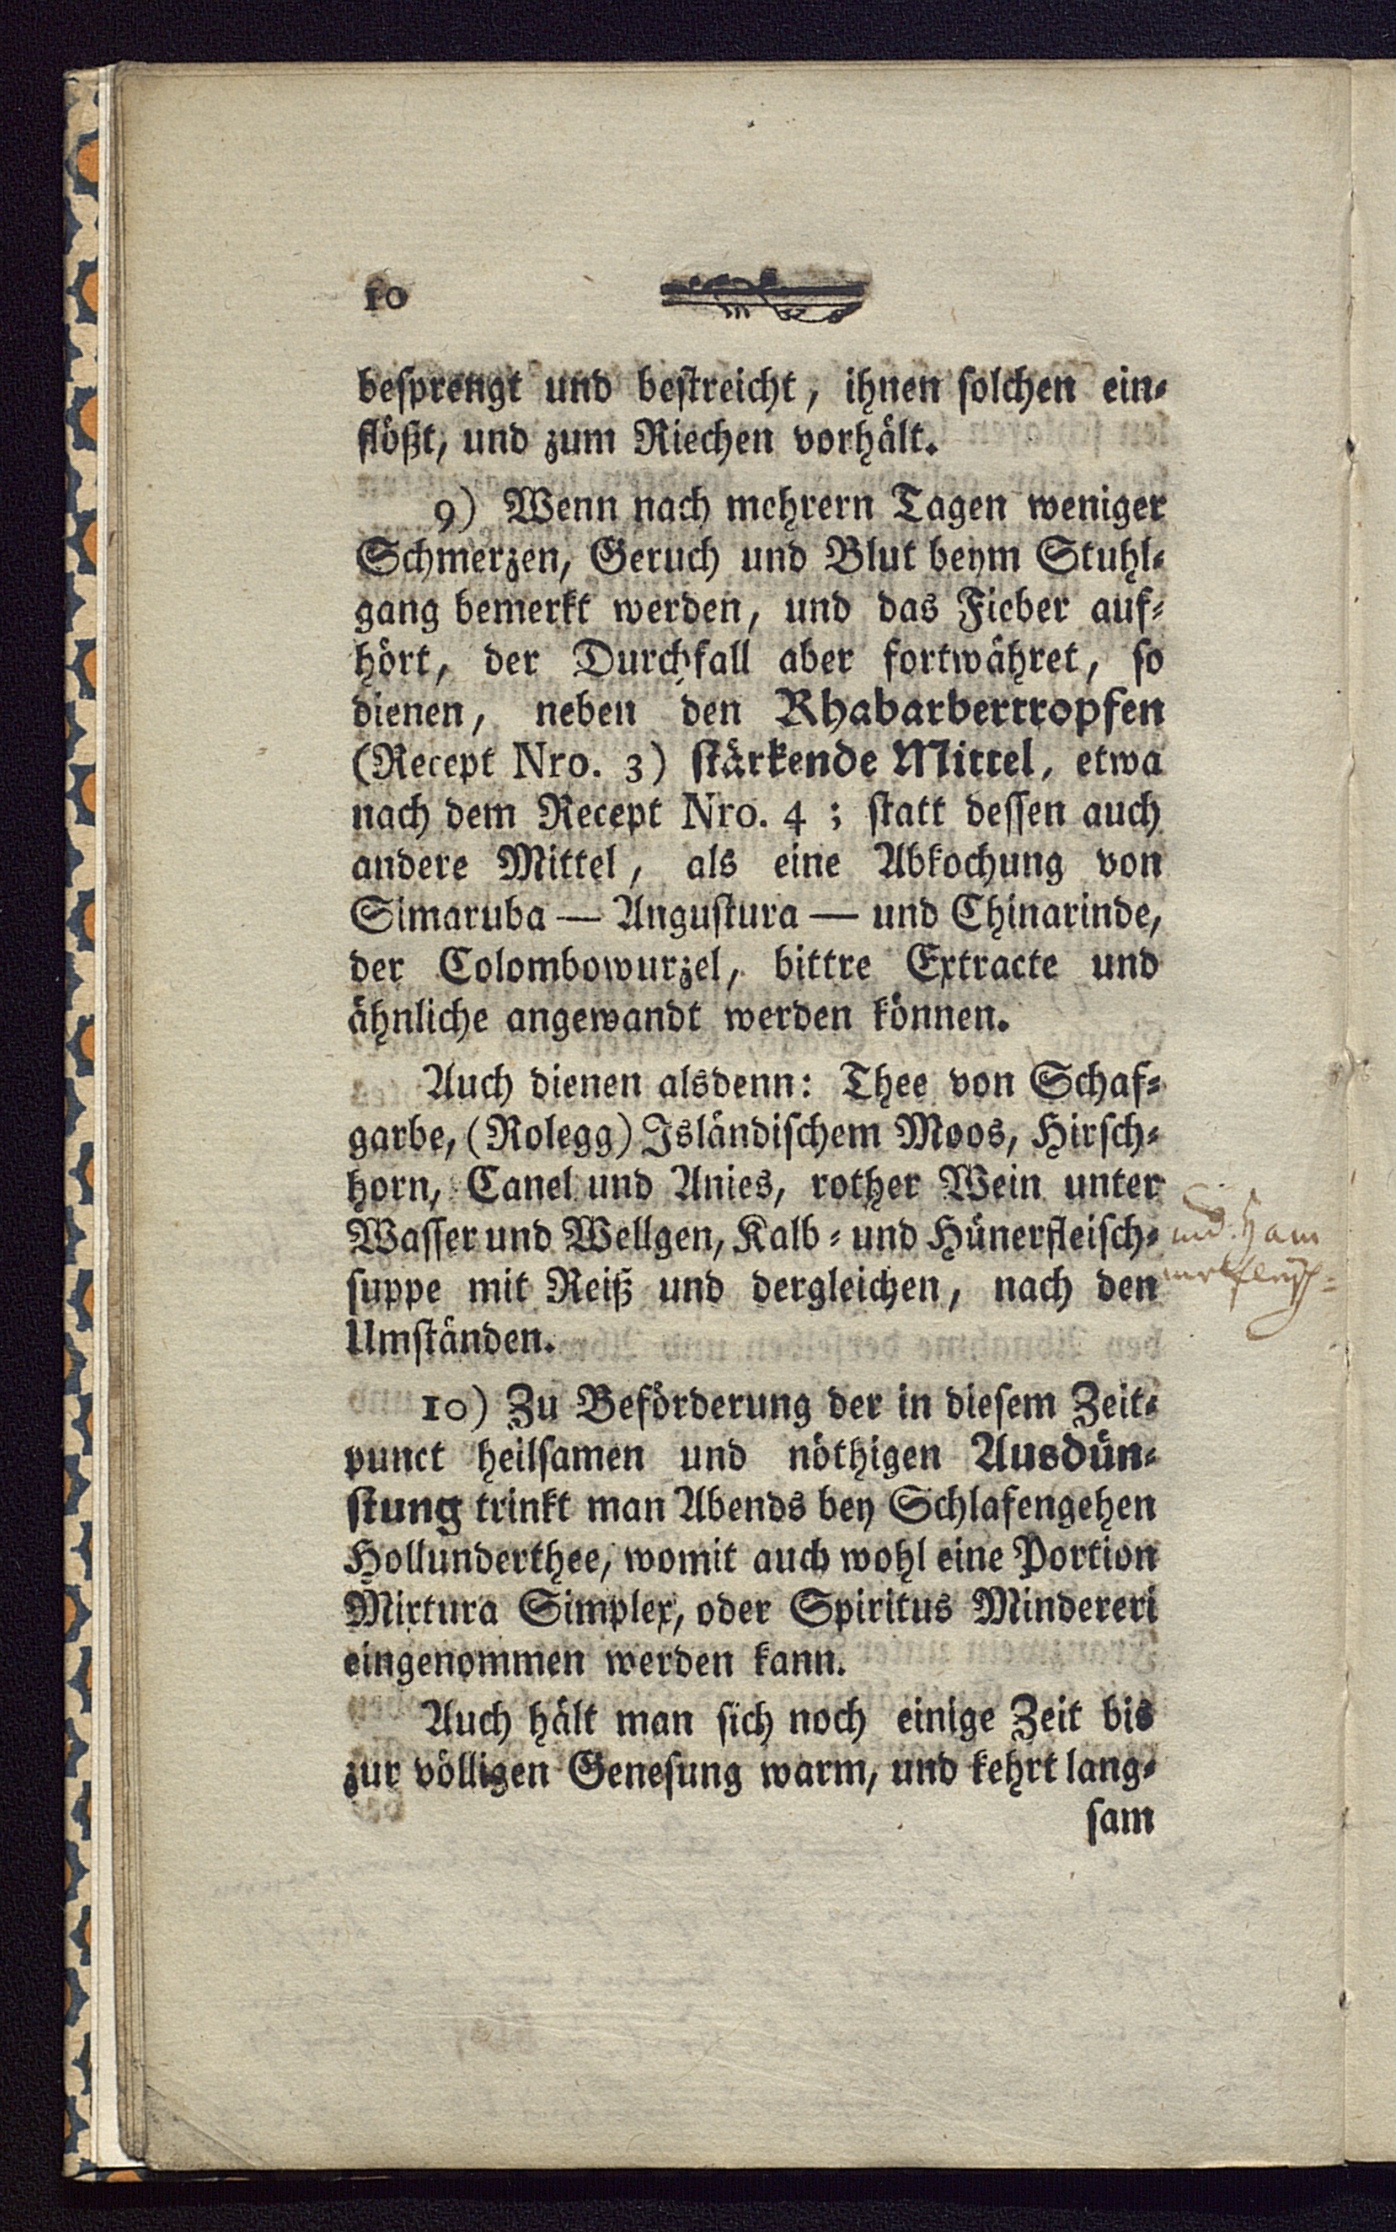 10
besprengt und bestreicht, ihnen solchen ein-
flößt, und zum Riechen vorhält.
9) Wenn nach mehrern Tagen weniger
Schmerzen, Geruch und Blut beym Stuhl-
gang bemerkt werden, und das Fieber auf-
hört, der Durchfall aber fortwähret, so
dienen, neben den Rhabarbertropfen
(Recept Nro. 3) stärkende Mittel, etwa
nach dem Recept Nro. 4 ; statt dessen auch
andere Mittel, als eine Abkochung von
Simaruba — Angustura — und Chinarinde,
der Colombowurzel, bittre Extracte und
ähnliche angewandt werden können.
Auch dienen alsdenn: Thee von Schaf-
garbe, (Rolegg) Isländischem Moos, Hirsch-
horn, Canel und Anies, rother Wein unter
Wasser und Wellgen, Kalb- und Hünerfleisch-
und Ham
suppe mit Reiß und dergleichen, nach den
melfleisch-
Umständen.
10) Zu Beförderung der in diesem Zeit-
punct heilsamen und nöthigen Ausdün-
stung trinkt man Abends bey Schlafengehen
Hollunderthee, womit auch wohl eine Portion
Mixtura Simplex, oder Spiritus Mindereri
eingenommen werden kann.
Auch hält man sich noch einige Zeit bis
zur völligen Genesung warm, und kehrt lang-
sam